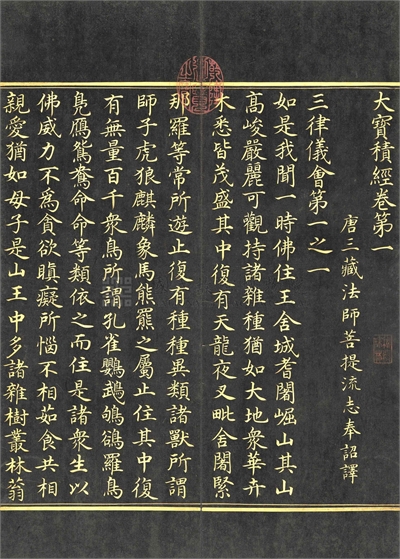 大寶積經卷第一
唐三藏法師菩提流志奉詔譯
三律儀會第一之一
如是我聞一時佛住王舍城耆闍崛山其山
高峻嚴麗可觀持諸雜種猶如大地衆華卉
木悉皆茂盛其中復有天龍夜叉毗舍闍緊
那羅等常所遊止復有種種異類諸獸所謂
師子虎狼麒麟象馬熊羆之屬止住其中復
有無量百千衆鳥所謂孔雀鸚鵡鴝鵒羅鳥
鳧鴈鴛鴦命命等類依之而住是諸衆生以
佛威力不爲貪欲瞋癡所惱不相茹食共相
親愛猶如母子是山王中多諸雜樹叢林蓊